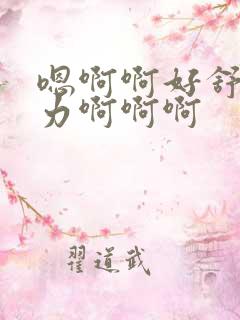 嗯啊啊好舒
力啊啊啊
翟道武